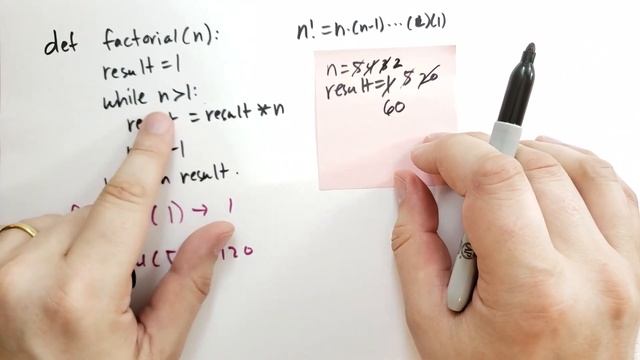 def factorial(n):
result = 1
while n>1:
= result * n
-1
result.
(1) → 1
120
n! = n·(n-1)···(2)(1)
n = 5 4 3 2
result = 1 5 20
60